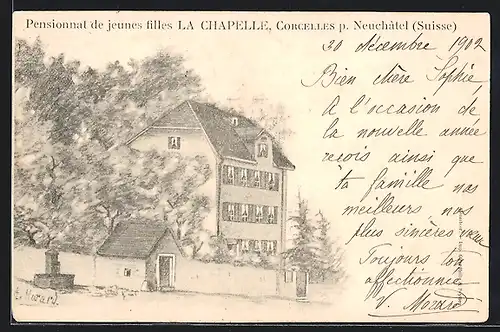 Pensionnat de jeunes filles LA CHAPELLE, CORCELLES p. Neuchâtel (Suisse)
30 décembre 1902
Bien chère Sophie,
A l'occasion de
la nouvelle année
reçois ainsi que
ta famille nos
meilleurs nos
plus sincères vœux
Toujours ton
affectionnée
V. Morard